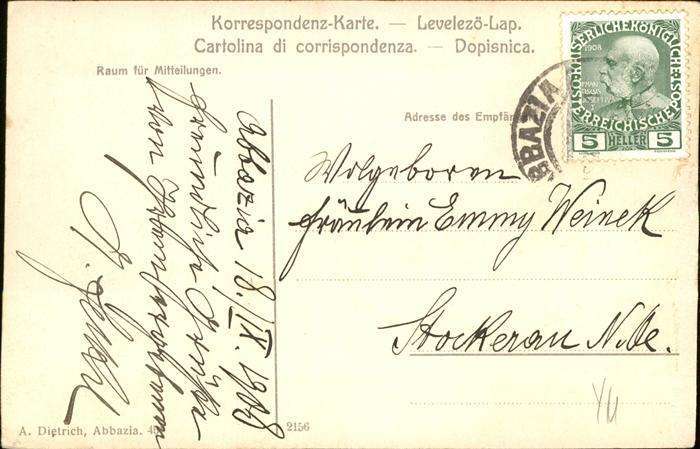 Korrespondenz-Karte. — Levelező-Lap.
Cartolina di corrispondenza. — Dopisnica.
Raum für Mitteilungen.
Adresse des Empfän
KAISERLICHE KÖNIGLICHE
ÖSTERREICHISCHE
1908
5 HELLER 5
ABBAZIA
Wolgeboren
Fräulein Emmy Weinek
Stockerau N.Oe.
Abbazia 18./IX. 1908
Freundliche Grüße
von
A. Dietrich, Abbazia.
2156